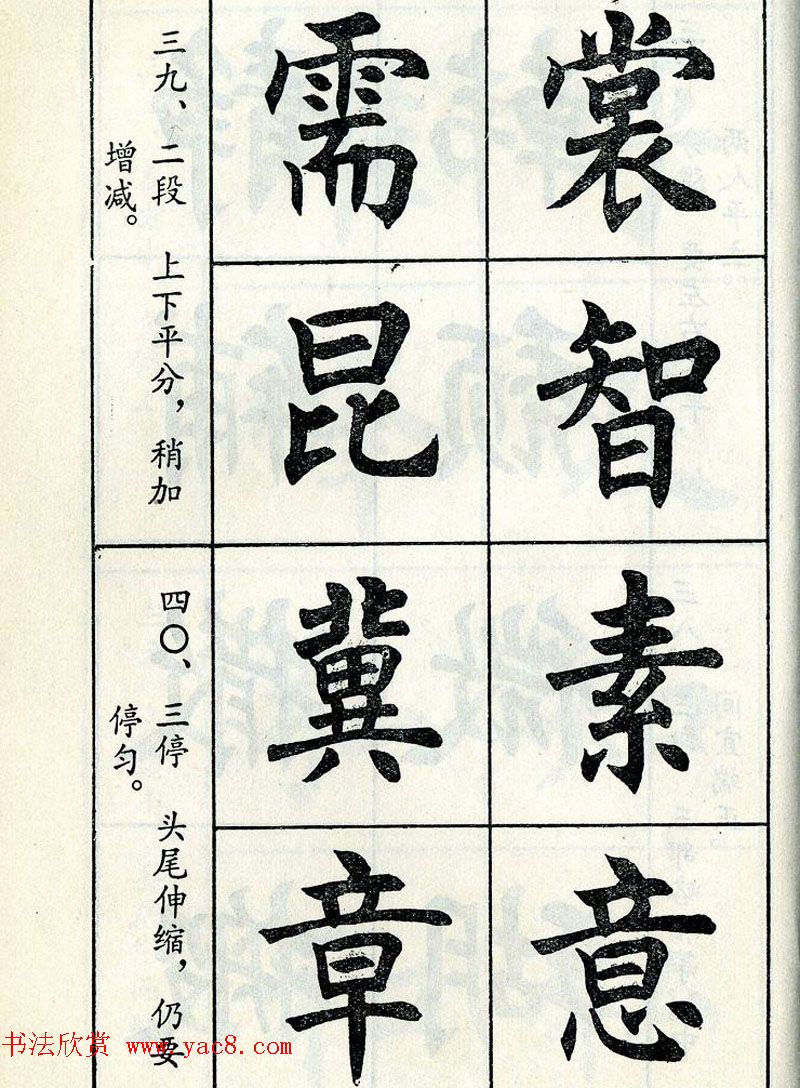 裳智
需昆
三九、二段 上下平分，稍加
增减。
素意
冀章
四〇、三停 头尾伸缩，仍要
停匀。
书法欣赏 www.yac8.com